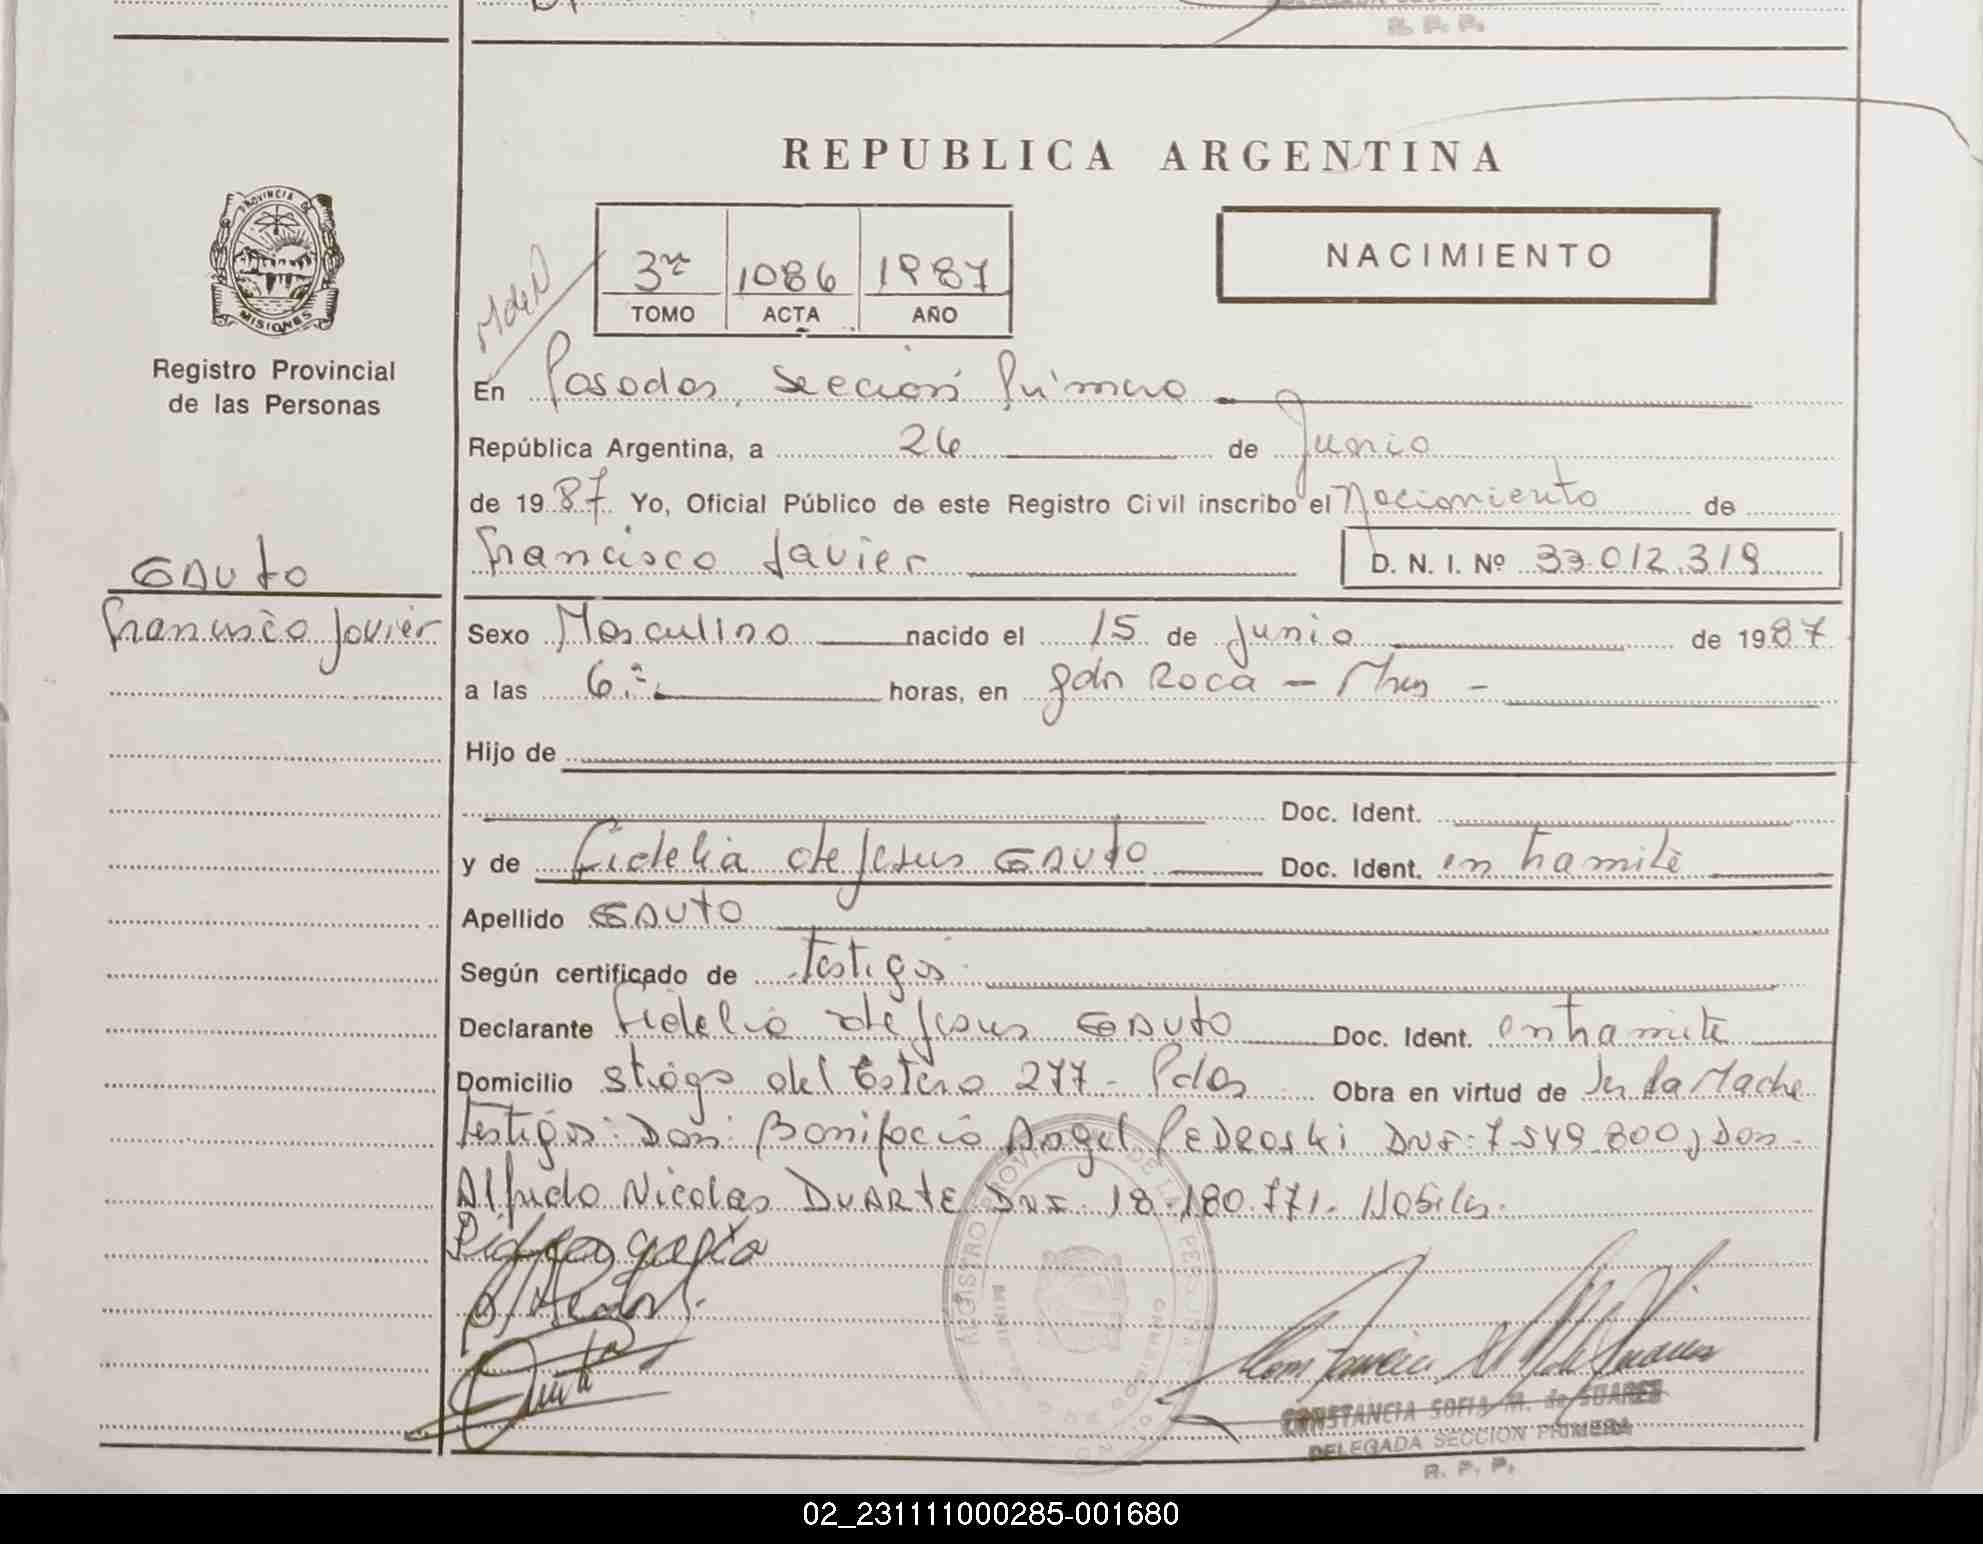 R. P. P.
REPUBLICA ARGENTINA
PROVINCIA DE
MISIONES
Registro Provincial
de las Personas
MdeN
3ro 1086 1987
TOMO ACTA AÑO
NACIMIENTO
En Posadas, Sección Primera
República Argentina, a 26 de Junio
de 1987 Yo, Oficial Público de este Registro Civil inscribo el Nacimiento de
Francisco Javier D. N. I. Nº 33.012.319
GAUTO
Francisco Javier
Sexo Masculino nacido el 15 de Junio de 1987
a las 6.- horas, en Gdor Roca - Mnes -
Hijo de
Doc. Ident.
y de Fidelia de Jesus GAUTO Doc. Ident. en tramite
Apellido GAUTO
Según certificado de Testigos
Declarante Fidelia de Jesus GAUTO Doc. Ident. en tramite
Domicilio Stiago del Estero 277 - Pdas Obra en virtud de Ser la Madre
Testigos: Don: Bonifacio Angel PEDROSKI DNI: 7.549.800, Don
Alfredo Nicolas DUARTE DNI. 18.180.771. Hábiles.
REGISTRO PROVINCIAL DE LAS PERSONAS
CONSTANCIA SOFIA M. de SUARES
DELEGADA SECCION PRIMERA
R. P. P.
02_231111000285-001680